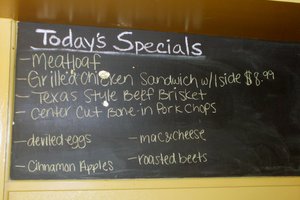 Today's Specials
- Meatloaf
- Grilled Chicken Sandwich w/ 1 side $8.99
- Texas Style Beef Brisket
- Center Cut Bone-in Pork Chops
- deviled eggs - mac & cheese
- Cinnamon Apples - roasted beets